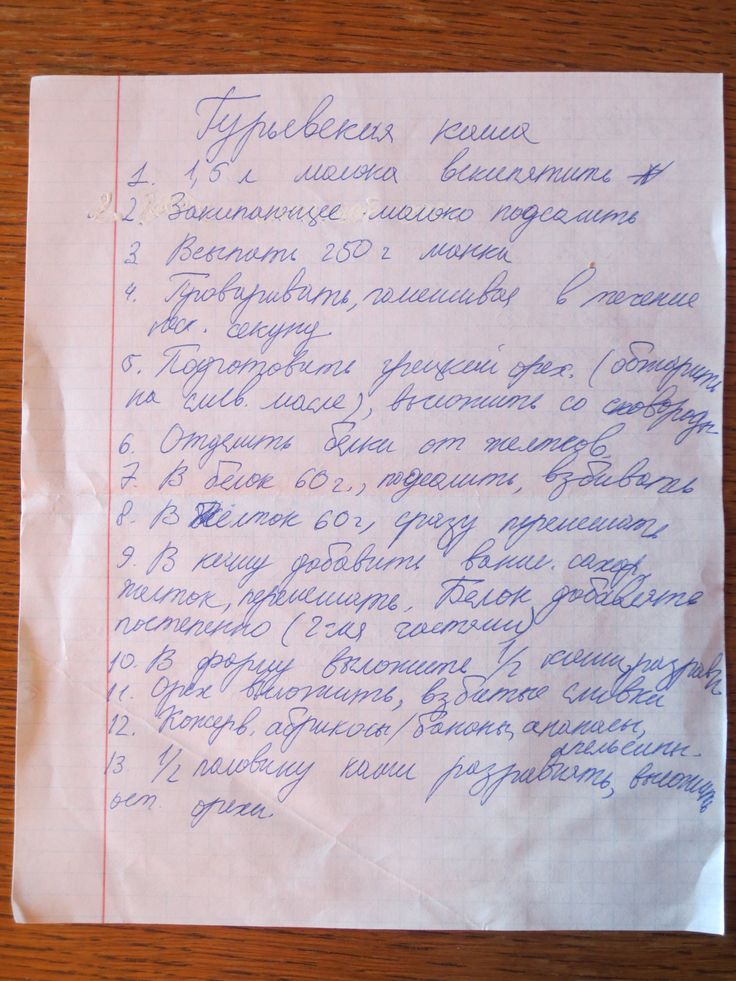 Гурьевская каша
1. 1,5 л молока вскипятить
2. Закипающее молоко подсалить
3. Всыпать 250 г манки
4. Проваривать, помешивая в течение
неск. секунд
5. Подготовить грецкий орех. (обжарить
на слив. масле), выложить со сковороды
6. Отделить белки от желтков
7. В белок 60 г., подсалить, взбивать
8. В желток 60 г, сразу перемешать
9. В кашу добавить ванил. сахар,
желток, перемешать. Белок добавлять
постепенно (2-мя частями)
10. В форму выложить 1/2 каши, разравн
11. Орех выложить, взбитые сливки
12. Консерв. абрикосы/бананы, ананасы,
апельсины.
13. 1/2 половину каши разравнять, выложить
ост. орехи.